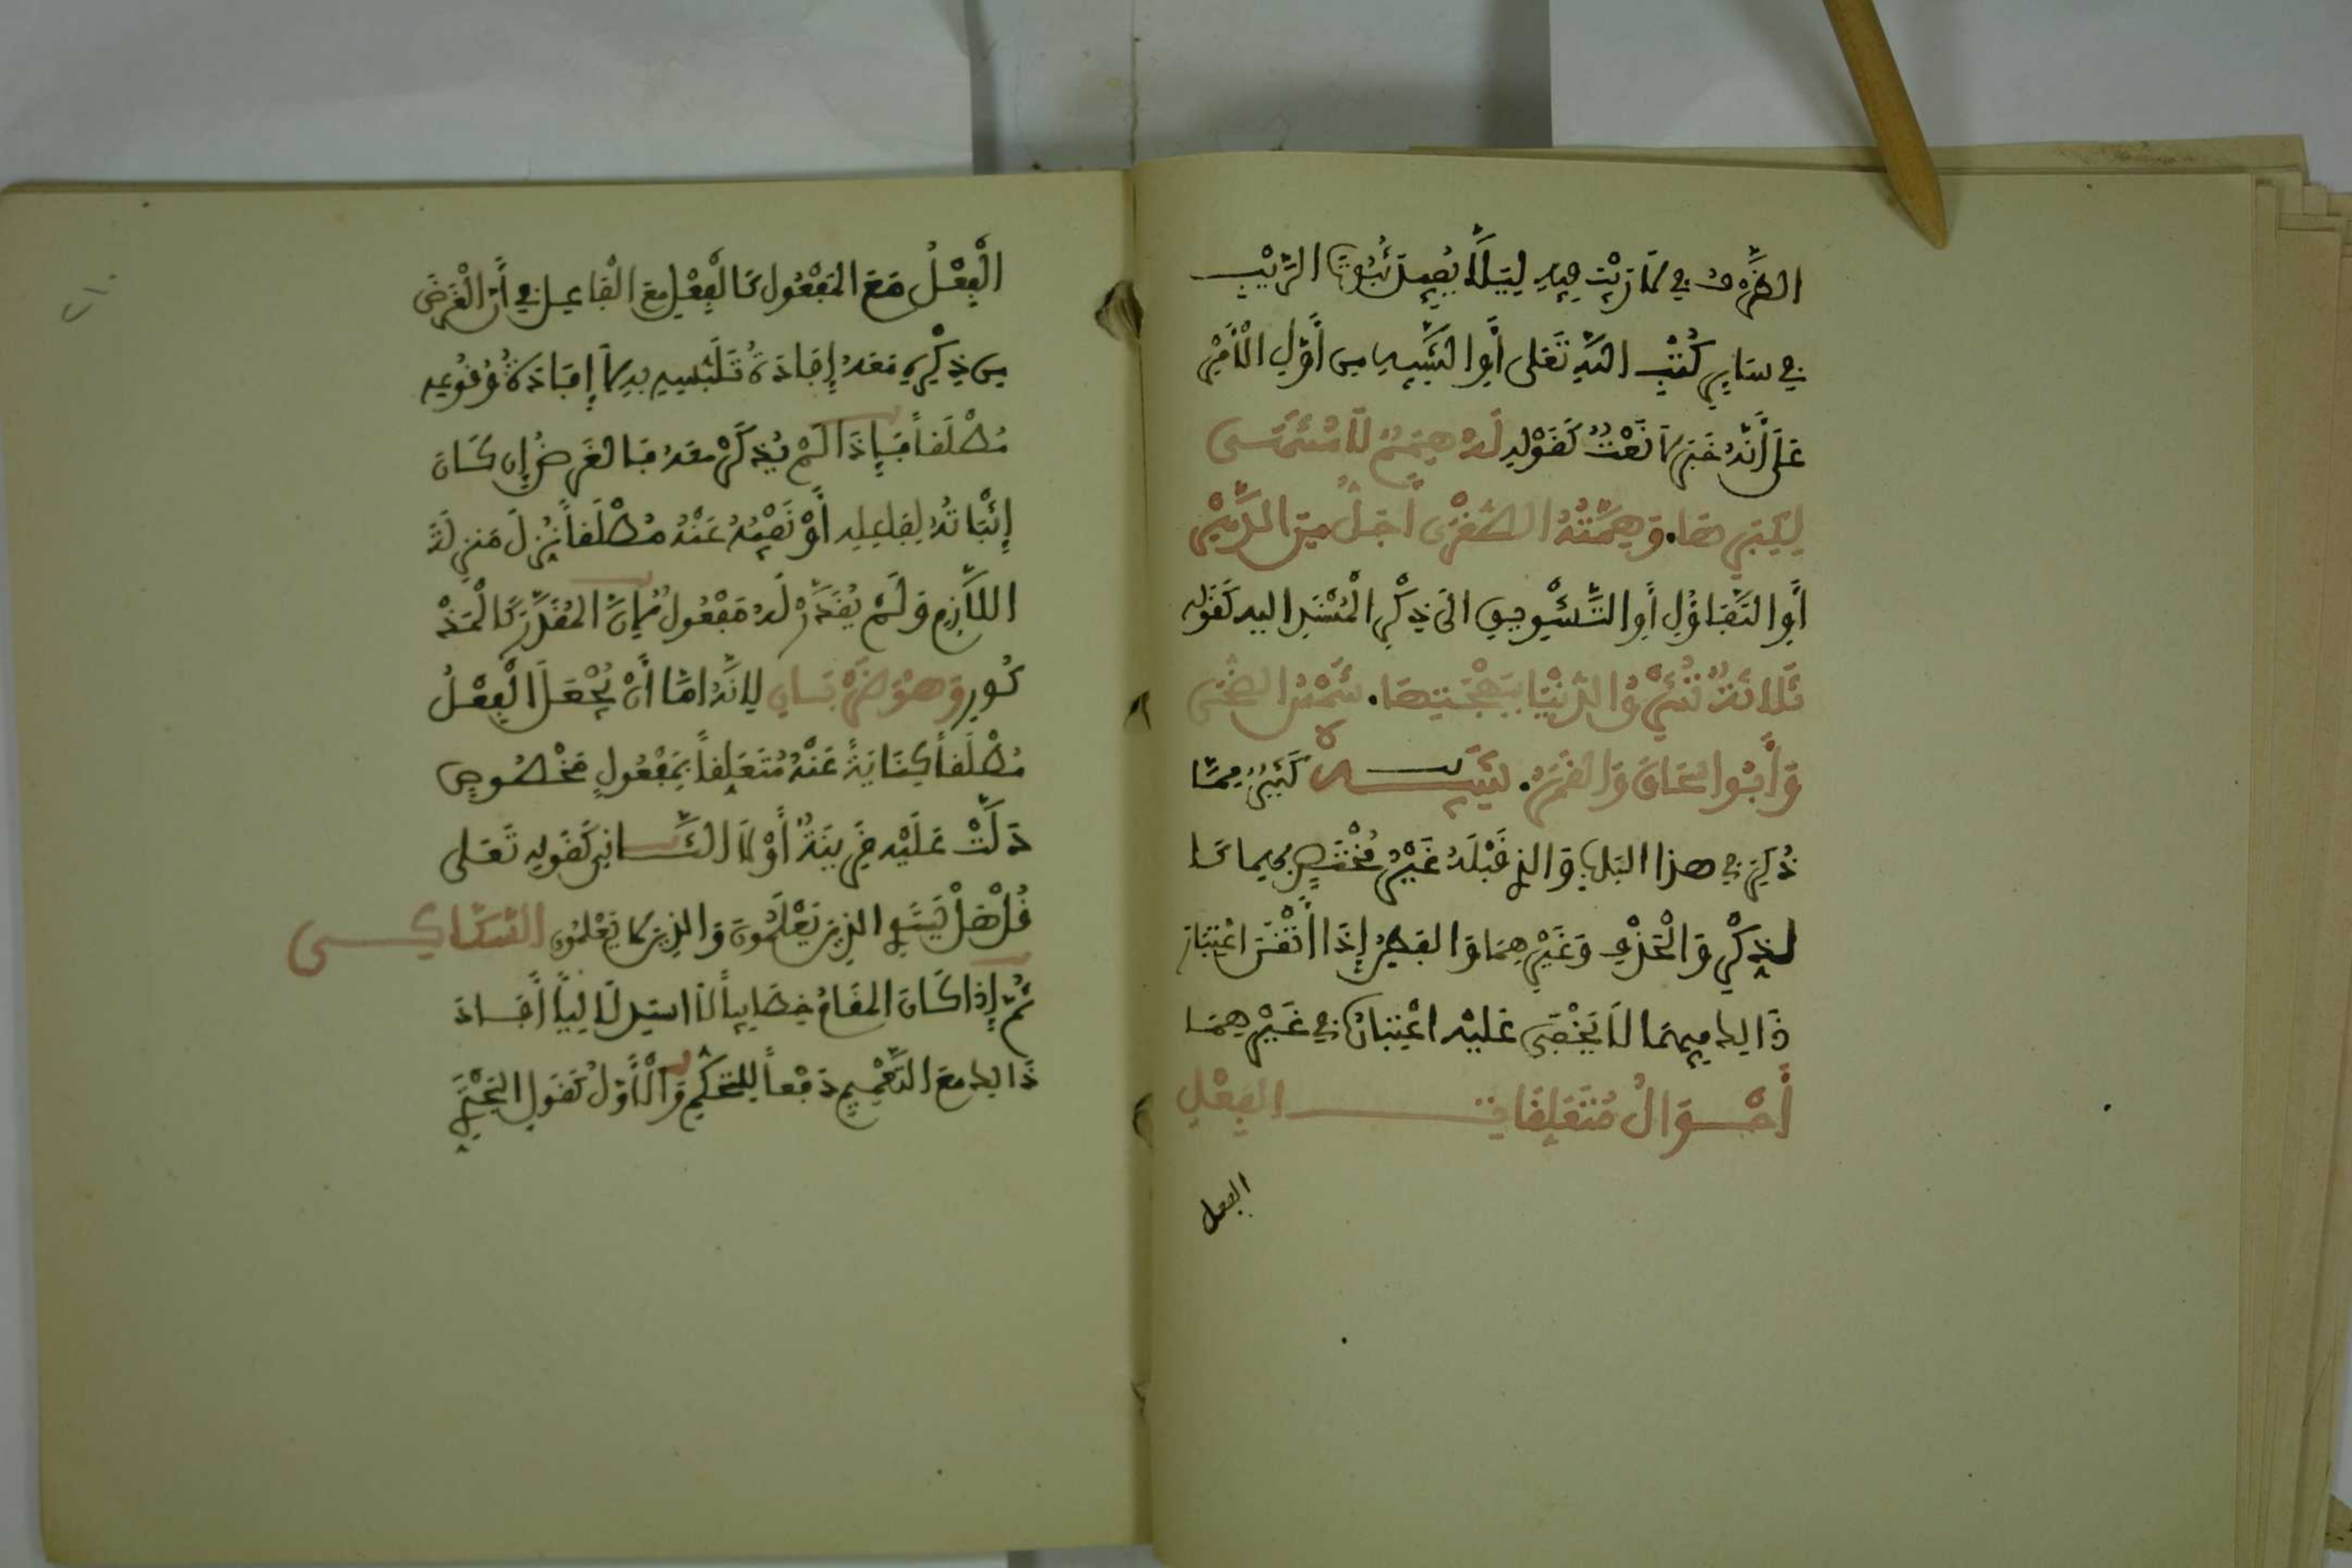 الظَّرْفُ في لَا رَيْبَ فِيهِ لِيَلَّا يُفِيدَ ثُبُوتَ الرَّيْبِ
في سَايِرِ كُتُبِ اللَّهِ تَعَلى أَوِ التَّنْبِيهِ من أَوَّلِ الْأَمْرِ
عَلَى أَنَّهُ خَبَرٌ لَا نَعْتٌ كَقَوْلِهِ لَهُ هِمَمٌ لَا مُنْتَهَى
لِكِبَارِهَا. وَهِمَّتُهُ الصُّغْرَى أَجَلُّ مِنَ الدَّهْرِ
أَوِ التَّفَاؤُلِ أَوِ التَّشْوِيقِ الَى ذِكْرِ الْمُسْنَدِ اليه كَقَوله
ثَلَاثَةٌ تُشْرِقُ الدُّنْيَا بِبَهْجَتِهَا. شَمْسُ الضُّحَى
وَأَبُوا سْحَاقَ وَالقَمَرُ. تَنْبِيهٌ كَثِيرٌ مِمَّا
ذُكِرَ في هذا البَابِ وَالذِي قَبْلَهُ غَيْرُ مُخْتَصٍّ بهِمَا كَا
لذِكْرِ وَالْحَذْفِ وَغَيْرِهِمَا وَالفَطِنُ إِذَا أَتْقَنَ اعْتِبَارَ
ذَالِكَ فِيهِمَا لَا يَخْفَى عَلَيْه اعْتِبَارُهُ فِي غَيْرِهِمَا
أَحْوَالُ مُتَعَلِقَاتِ الفِعْلِ
الفعل
الْفِعْلُ مَعَ المَفْعُولِ كَالْفِعْلِ مَعَ الْفَاعِلِ في أَنَّ الْغَرَضَ
مِن ذِكْرِهِ مَعَهُ إِفَادَةُ تَلَبُّسِهِ بِهِ لَا إِفَادَةُ وُقُوعِهِ
مُطْلَقاً فَإِذَا لَمْ يُذْكَرْ مَعَهُ فَالغَرَضُ إِن كَانَ
إِثْبَاتَهُ لِفَاعِلِهِ أَوْ نَفْيَهُ عَنْهُ مُطْلَقاً نُزِّلَ مَنزِلَةَ
اللَّازِمِ وَلَمْ يُقَدَّرْ لَهُ مَفْعُولٌ لِأَنَّ المُقَدَّرَ كَالْمَذْ
كُورِ وَهُوَ ضَرْبَانِ لِأَنَّهُ امَّا أَنْ يُجْعَلَ الْفِعْلُ
مُطْلَقاً كِنَايَةً عَنْهُ مُتَعَلِقاً بِمَفْعُولٍ مَخْصُوصٍ
دَلَّتْ عَلَيْهِ قَرِينَةٌ أَوْ لَا الثَّانِي كَقَوْلِهِ تَعَلى
قُلْ هَلْ يَسْتَوِي الذِينَ يَعْلَمُونَ وَالذِينَ لَا يَعْلَمُونَ السَّكَّاكِي
ثُمَّ إِذَا كَانَ المَقَامُ خِطَابِياً لَا اسْتِدْلَالِيّاً أَفَادَ
ذَالِكَ مَعَ التَّعْمِيمِ دَفْعاً لِلتَّحَكُّمِ وَالْأَوَّلُ كَقَوْلِ البُحْتُرِي